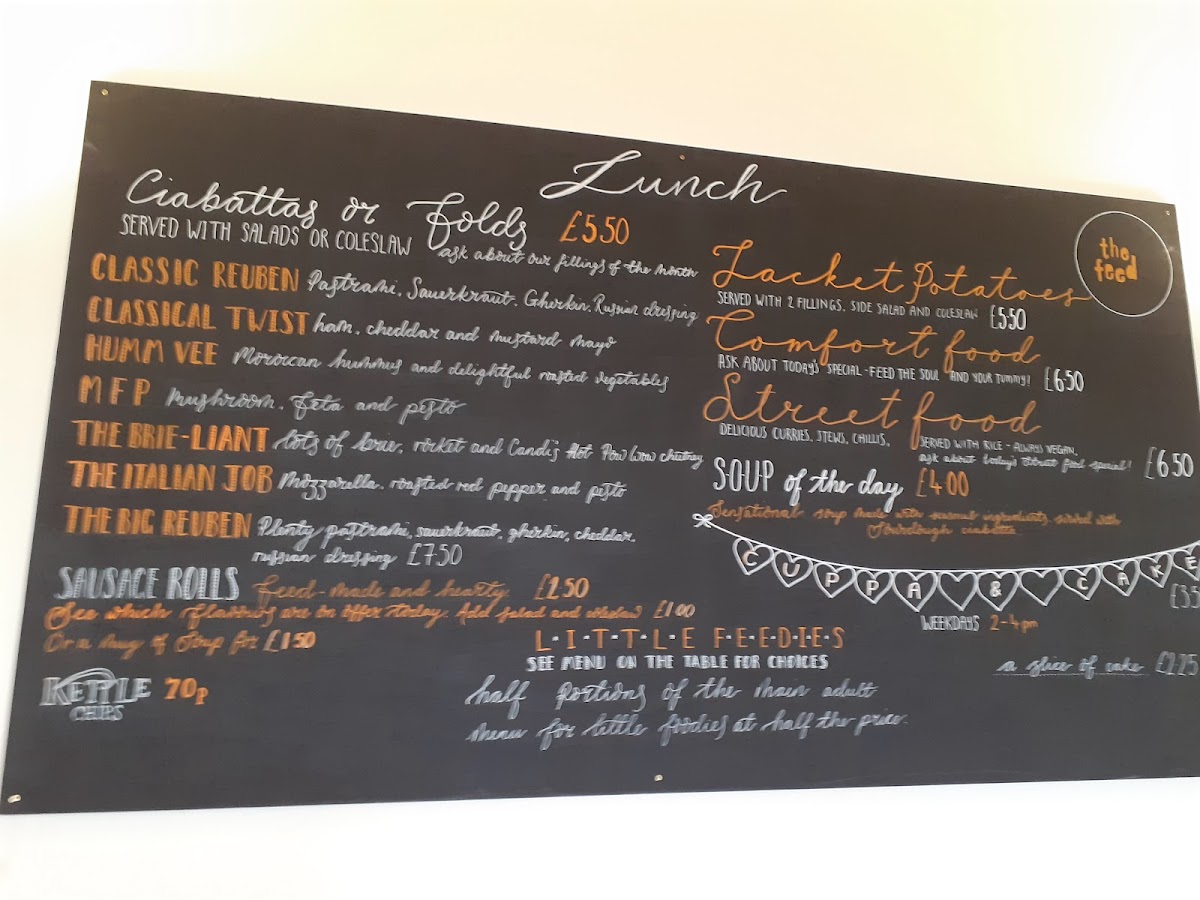 Lunch
the
feed
Ciabattas or Folds £5.50
SERVED WITH SALADS OR COLESLAW
ask about our fillings of the month
CLASSIC REUBEN Pastrami, Sauerkraut, Gherkin, Russian dressing
CLASSICAL TWIST ham, cheddar and mustard mayo
HUMM VEE Moroccan hummus and delightful roasted vegetables
MFP Mushroom, Feta and pesto
THE BRIE-LIANT lots of brie, rocket and Candi's Hot Pow Wow chutney
THE ITALIAN JOB Mozzarella, roasted red pepper and pesto
THE BIG REUBEN Plenty pastrami, sauerkraut, gherkin, cheddar,
russian dressing £7.50
SAUSAGE ROLLS Feed-made and hearty £2.50
See which flavours are on offer today. Add salad and coleslaw £1.00
Or a mug of Soup for £1.50
KETTLE 70p
CHIPS
Jacket Potatoes
SERVED WITH 2 FILLINGS, SIDE SALAD AND COLESLAW £5.50
Comfort food
ASK ABOUT TODAY'S SPECIAL - FEED THE SOUL AND YOUR TUMMY! £6.50
Street food
DELICIOUS CURRIES, STEWS, CHILLIS,
SERVED WITH RICE - ALWAYS VEGAN,
ask about today's street food special! £6.50
SOUP of the day £4.00
Sensational soup made with seasonal ingredients, served with
Sourdough ciabatta
CUPPA & CAKE
WEEKDAYS 2-4pm
a slice of cake £2.25
L·I·T·T·L·E F·E·E·D·I·E·S
SEE MENU ON THE TABLE FOR CHOICES
half portions of the main adult
menu for little foodies at half the price.